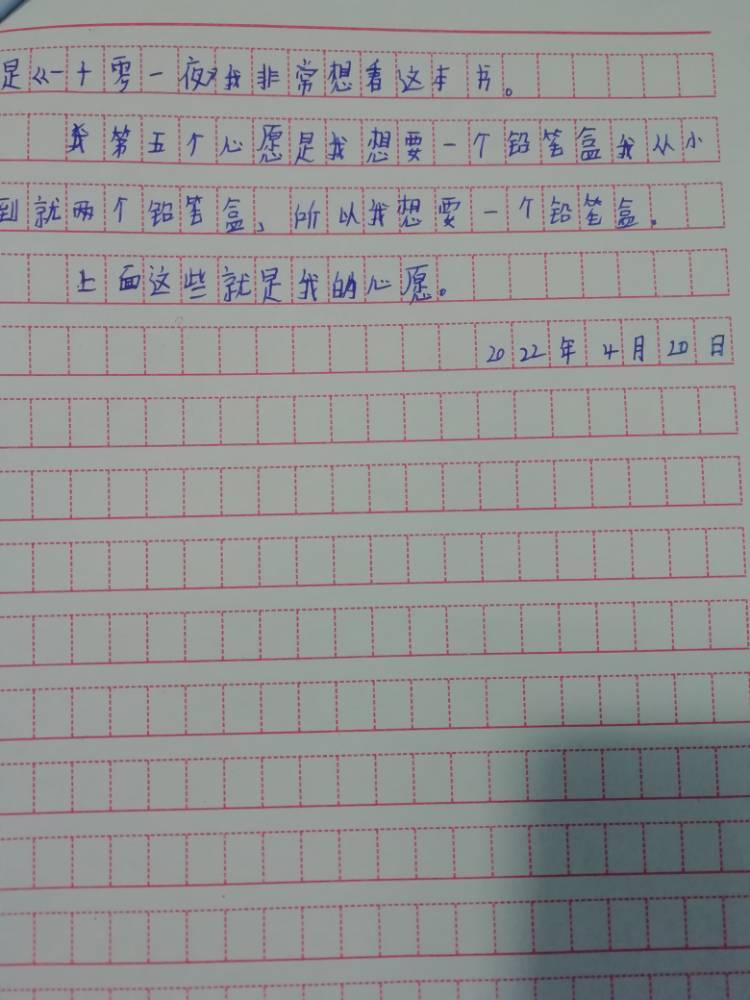 是《一十零一夜》我非常想看这本书。
我第五个心愿是我想要一个铅笔盒我从小
到就两个铅笔盒,所以我想要一个铅笔盒.
上面这些就是我的心愿。
2022年4月20日